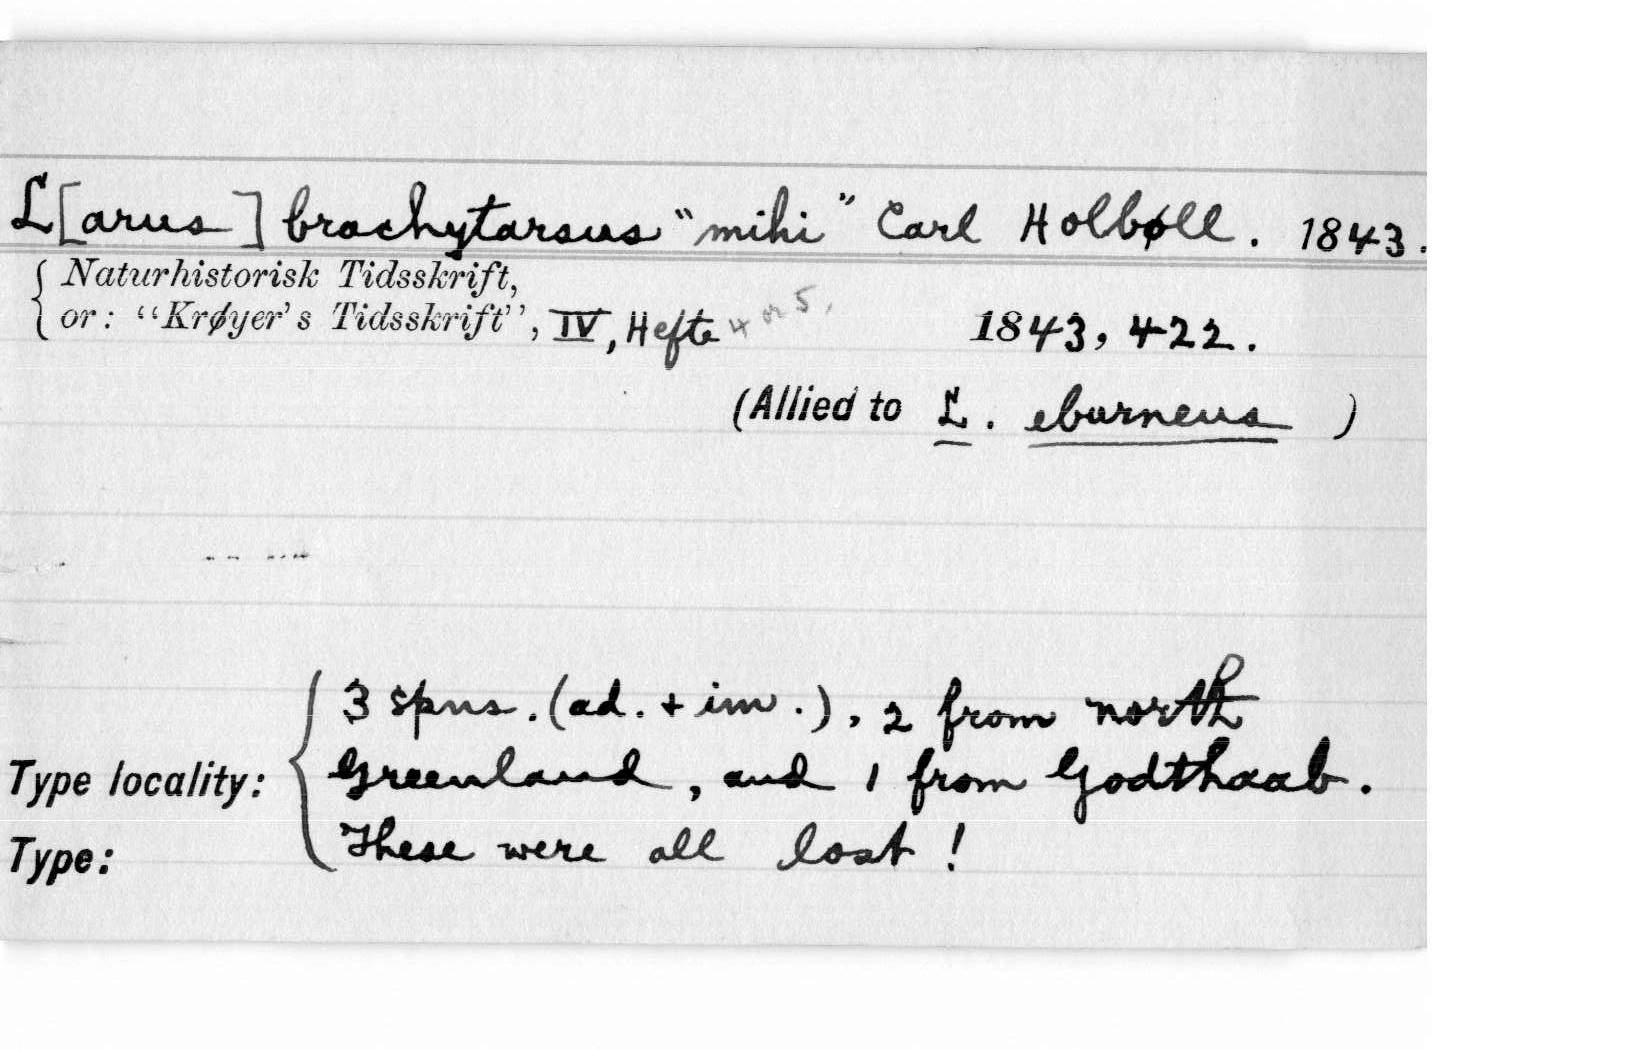 L[arus] brachytarsus "mihi" Carl Holbøll. 1843.
Naturhistorisk Tidsskrift,
or: "Krøyer's Tidsskrift", IV, Hefte 4 or 5, 1843, 422.
(Allied to L. eburneus )
3 spns. (ad. + im.), 2 from north
Type locality: Greenland, and 1 from Godthaab.
Type: These were all lost!